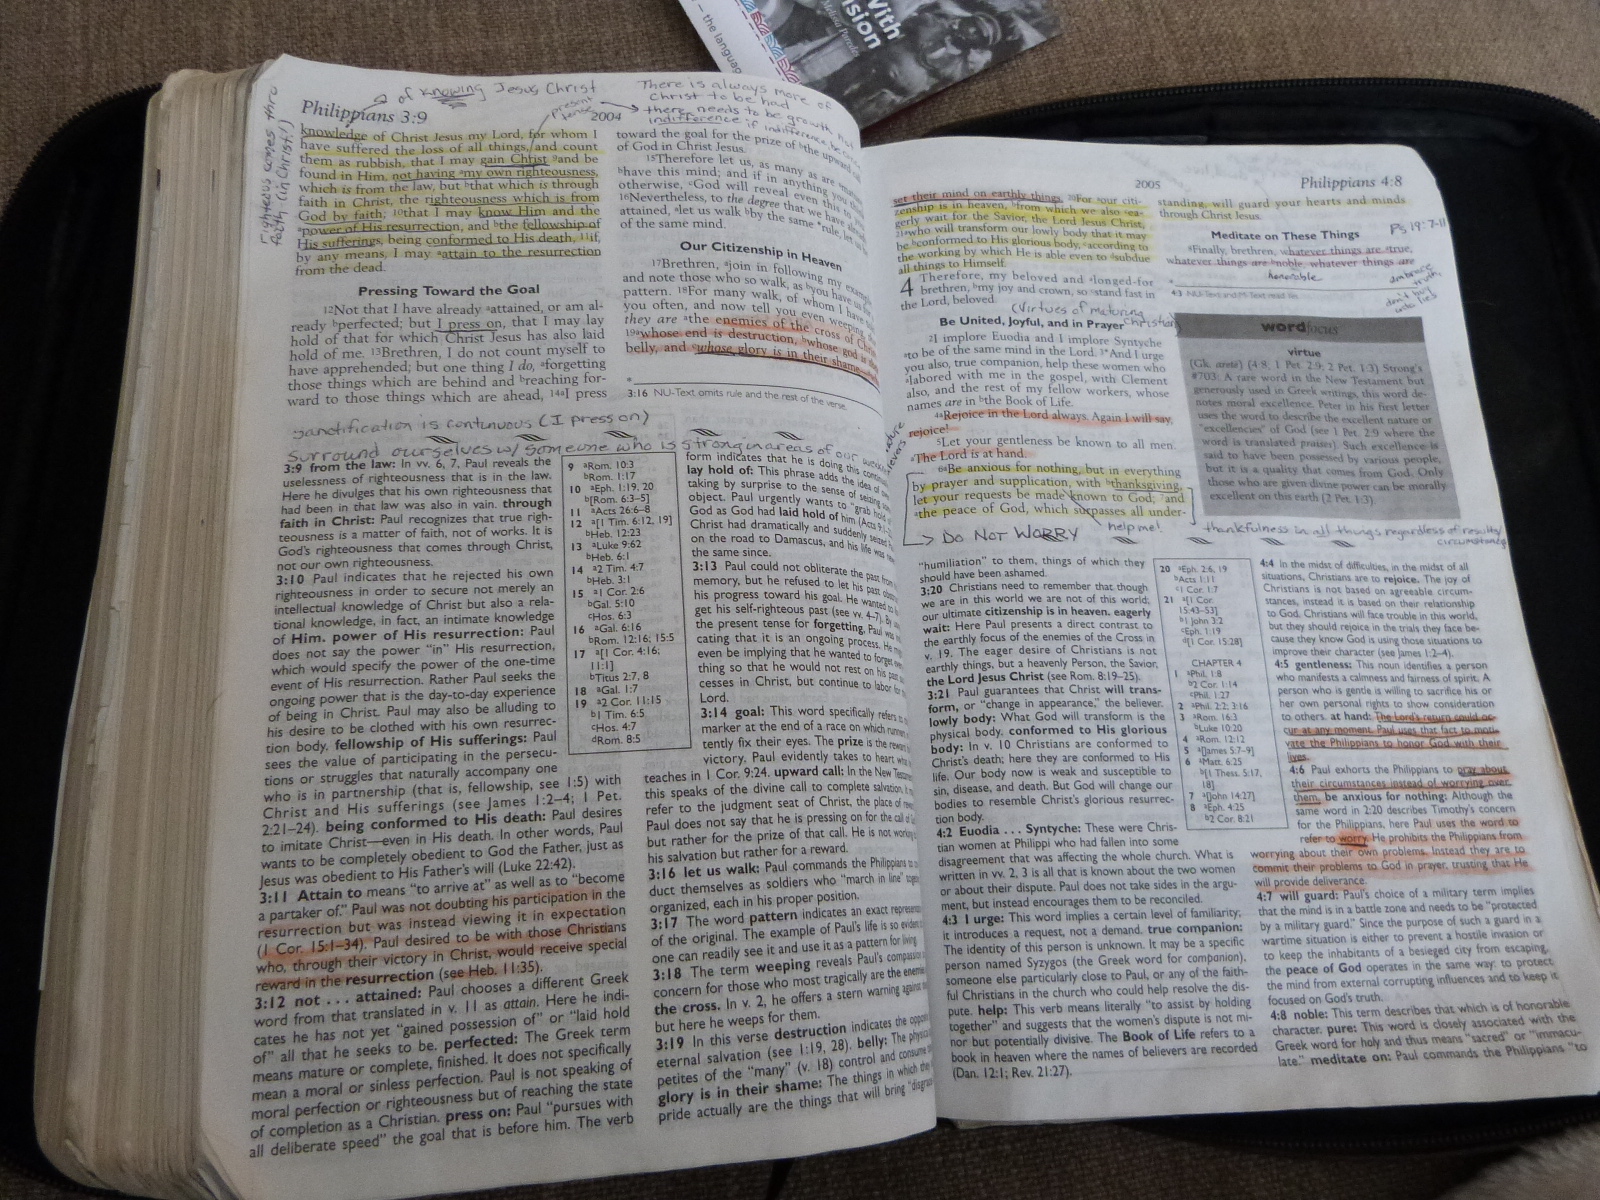 With
ision
Melissa Parede
– the languag
of knowing Jesus Christ
present tense
There is always more of
Christ to be had
there needs to be growth
indifference if indifference,
righteous comes thru
faith (in Christ!)
Philippians 3:9
2004
knowledge of Christ Jesus my Lord, for whom I
have suffered the loss of all things, and count
them as rubbish, that I may gain Christ 9and be
found in Him, not having amy own righteousness,
which is from the law, but bthat which is through
faith in Christ, the righteousness which is from
God by faith; 10that I may know Him and the
apower of His resurrection, and bthe fellowship of
His sufferings, being conformed to His death, 11if,
by any means, I may aattain to the resurrection
from the dead.
Pressing Toward the Goal
12Not that I have already aattained, or am al-
ready bperfected; but I press on, that I may lay
hold of that for which Christ Jesus has also laid
hold of me. 13Brethren, I do not count myself to
have apprehended; but one thing I do, aforgetting
those things which are behind and breaching for-
ward to those things which are ahead, 14aI press
toward the goal for the prize of bthe upward
of God in Christ Jesus.
15Therefore let us, as many as are
bhave this mind; and if in anything you
otherwise, cGod will reveal even this to
16Nevertheless, to the degree that we have
attained, alet us walk bby the same crule, let us
of the same mind.
Our Citizenship in Heaven
17Brethren, ajoin in following my example
and note those who so walk, as byou have us
pattern. 18For many walk, of whom I have
you often, and now tell you even weeping,
they are athe enemies of the cross of Chr
19awhose end is destruction, bwhose god is
belly, and cwhose glory is in their shame
*
3:16 NU-Text omits rule and the rest of the verse.
sanctification is continuous (I press on)
Surround ourselves w/ someone who is strong in areas of our
3:9 from the law: In vv. 6, 7, Paul reveals the
uselessness of righteousness that is in the law.
Here he divulges that his own righteousness that
had been in that law was also in vain. through
faith in Christ: Paul recognizes that true righ-
teousness is a matter of faith, not of works. It is
God's righteousness that comes through Christ,
not our own righteousness.
3:10 Paul indicates that he rejected his own
righteousness in order to secure not merely an
intellectual knowledge of Christ but also a rela-
tional knowledge, in fact, an intimate knowledge
of Him. power of His resurrection: Paul
does not say the power "in" His resurrection,
which would specify the power of the one-time
event of His resurrection. Rather Paul seeks the
ongoing power that is the day-to-day experience
of being in Christ. Paul may also be alluding to
his desire to be clothed with his own resurrec-
tion body. fellowship of His sufferings: Paul
sees the value of participating in the persecu-
tions or struggles that naturally accompany one
who is in partnership (that is, fellowship, see 1:5) with
Christ and His sufferings (see James 1:2–4; 1 Pet.
2:21–24). being conformed to His death: Paul desires
to imitate Christ—even in His death. In other words, Paul
wants to be completely obedient to God the Father, just as
Jesus was obedient to His Father's will (Luke 22:42).
3:11 Attain to means "to arrive at" as well as to "become
a partaker of." Paul was not doubting his participation in the
resurrection but was instead viewing it in expectation
(1 Cor. 15:1–34). Paul desired to be with those Christians
who, through their victory in Christ, would receive special
reward in the resurrection (see Heb. 11:35).
3:12 not . . . attained: Paul chooses a different Greek
word from that translated in v. 11 as attain. Here he indi-
cates he has not yet "gained possession of" or "laid hold
of" all that he seeks to be. perfected: The Greek term
means mature or complete, finished. It does not specifically
mean a moral or sinless perfection. Paul is not speaking of
moral perfection or righteousness but of reaching the state
of completion as a Christian. press on: Paul "pursues with
all deliberate speed" the goal that is before him. The verb
9 aRom. 10:3
bRom. 1:17
10 aEph. 1:19, 20
b[Rom. 6:3–5]
11 aActs 26:6–8
12 a[1 Tim. 6:12, 19]
bHeb. 12:23
13 aLuke 9:62
bHeb. 6:1
14 a2 Tim. 4:7
bHeb. 3:1
15 a1 Cor. 2:6
bGal. 5:10
cHos. 6:3
16 aGal. 6:16
bRom. 12:16; 15:5
17 a[1 Cor. 4:16;
11:1]
bTitus 2:7, 8
18 aGal. 1:7
19 a2 Cor. 11:15
b1 Tim. 6:5
cHos. 4:7
dRom. 8:5
form indicates that he is doing this
lay hold of: This phrase adds the idea of
taking by surprise to the sense of seizing
object. Paul urgently wants to "grab hold
God as God had laid hold of him (Acts 9:1
Christ had dramatically and suddenly seized
on the road to Damascus, and his life was
the same since.
3:13 Paul could not obliterate the past from
memory, but he refused to let his past
his progress toward his goal. He wanted to
get his self-righteous past (see vv. 4–7). By
the present tense for forgetting, Paul was
cating that it is an ongoing process. He
even be implying that he wanted to forget
thing so that he would not rest on his past
cesses in Christ, but continue to labor for
Lord.
3:14 goal: This word specifically refers
marker at the end of a race on which runners
tently fix their eyes. The prize is the reward
victory. Paul evidently takes to heart what
teaches in 1 Cor. 9:24. upward call: In the New Testa
this speaks of the divine call to complete salvation,
refer to the judgment seat of Christ, the place of
Paul does not say that he is pressing on for the call of
but rather for the prize of that call. He is not working
his salvation but rather for a reward.
3:16 let us walk: Paul commands the Philippians to
duct themselves as soldiers who "march in line"
organized, each in his proper position.
3:17 The word pattern indicates an exact
of the original. The example of Paul's life is so evident
one can readily see it and use it as a pattern for living.
3:18 The term weeping reveals Paul's compassion
concern for those who most tragically are the
the cross. In v. 2, he offers a stern warning against
but here he weeps for them.
3:19 In this verse destruction indicates the
eternal salvation (see 1:19, 28). belly: The
petites of the "many" (v. 18) control and consume
glory is in their shame: The things in which the
pride actually are the things that will bring
2005
Philippians 4:8
set their mind on earthly things. 20For aour citi-
zenship is in heaven, bfrom which we also cea-
gerly wait for the Savior, the Lord Jesus Christ,
21awho will transform our lowly body that it may
be bconformed to His glorious body, caccording to
the working by which He is able even to dsubdue
all things to Himself.
4 Therefore, my beloved and alonged-for
brethren, bmy joy and crown, so cstand fast in
the Lord, beloved.
(virtues of maturing
Christian)
Be United, Joyful, and in Prayer
2I implore Euodia and I implore Syntyche
ato be of the same mind in the Lord. 3*And I urge
you also, true companion, help these women who
alabored with me in the gospel, with Clement
also, and the rest of my fellow workers, whose
names are in bthe Book of Life.
4aRejoice in the Lord always. Again I will say,
rejoice!
5Let your gentleness be known to all men.
aThe Lord is at hand.
6aBe anxious for nothing, but in everything
by prayer and supplication, with bthanksgiving,
let your requests be made known to God; 7and
athe peace of God, which surpasses all under-
DO NOT WORRY
help me!
standing, will guard your hearts and minds
through Christ Jesus.
Ps 19:7-11
Meditate on These Things
8Finally, brethren, whatever things are atrue,
whatever things are bnoble, whatever things are
honorable
embrace
truth,
don't buy
into lies
*
4:3 NU-Text and M-Text read Yes.
wordfocus
virtue
(Gk. aretē) (4:8; 1 Pet. 2:9; 2 Pet. 1:3) Strong's
#703: A rare word in the New Testament but
generously used in Greek writings, this word de-
notes moral excellence. Peter in his first letter
uses the word to describe the excellent nature or
"excellencies" of God (see 1 Pet. 2:9 where the
word is translated praises). Such excellence is
said to have been possessed by various people,
but it is a quality that comes from God. Only
those who are given divine power can be morally
excellent on this earth (2 Pet. 1:3).
thankfulness in all things regardless of results/
circumstances
"humiliation" to them, things of which they
should have been ashamed.
3:20 Christians need to remember that though
we are in this world we are not of this world;
our ultimate citizenship is in heaven. eagerly
wait: Here Paul presents a direct contrast to
the earthly focus of the enemies of the Cross in
v. 19. The eager desire of Christians is not
earthly things, but a heavenly Person, the Savior,
the Lord Jesus Christ (see Rom. 8:19–25).
3:21 Paul guarantees that Christ will trans-
form, or "change in appearance," the believer.
lowly body: What God will transform is the
physical body. conformed to His glorious
body: In v. 10 Christians are conformed to
Christ's death; here they are conformed to His
life. Our body now is weak and susceptible to
sin, disease, and death. But God will change our
bodies to resemble Christ's glorious resurrec-
tion body.
4:2 Euodia . . . Syntyche: These were Chris-
tian women at Philippi who had fallen into some
disagreement that was affecting the whole church. What is
written in vv. 2, 3 is all that is known about the two women
or about their dispute. Paul does not take sides in the argu-
ment, but instead encourages them to be reconciled.
4:3 I urge: This word implies a certain level of familiarity;
it introduces a request, not a demand. true companion:
The identity of this person is unknown. It may be a specific
person named Syzygos (the Greek word for companion),
someone else particularly close to Paul, or any of the faith-
ful Christians in the church who could help resolve the dis-
pute. help: This verb means literally "to assist by holding
together" and suggests that the women's dispute is not mi-
nor but potentially divisive. The Book of Life refers to a
book in heaven where the names of believers are recorded
(Dan. 12:1; Rev. 21:27).
20 aEph. 2:6, 19
bActs 1:11
c1 Cor. 1:7
21 a[1 Cor.
15:43–53]
b1 John 3:2
cEph. 1:19
d[1 Cor. 15:28]
CHAPTER 4
1 aPhil. 1:8
b2 Cor. 1:14
cPhil. 1:27
2 aPhil. 2:2; 3:16
3 aRom. 16:3
bLuke 10:20
4 aRom. 12:12
5 a[James 5:7–9]
6 aMatt. 6:25
b[1 Thess. 5:17,
18]
7 a[John 14:27]
8 aEph. 4:25
b2 Cor. 8:21
4:4 In the midst of difficulties, in the midst of all
situations, Christians are to rejoice. The joy of
Christians is not based on agreeable circum-
stances, instead it is based on their relationship
to God. Christians will face trouble in this world,
but they should rejoice in the trials they face be-
cause they know God is using those situations to
improve their character (see James 1:2–4).
4:5 gentleness: This noun identifies a person
who manifests a calmness and fairness of spirit. A
person who is gentle is willing to sacrifice his or
her own personal rights to show consideration
to others. at hand: The Lord's return could oc-
cur at any moment. Paul uses that fact to moti-
vate the Philippians to honor God with their
lives.
4:6 Paul exhorts the Philippians to pray about
their circumstances instead of worrying over
them. be anxious for nothing: Although the
same word in 2:20 describes Timothy's concern
for the Philippians, here Paul uses the word to
refer to worry. He prohibits the Philippians from
worrying about their own problems. Instead they are to
commit their problems to God in prayer, trusting that He
will provide deliverance.
4:7 will guard: Paul's choice of a military term implies
that the mind is in a battle zone and needs to be "protected
by a military guard." Since the purpose of such a guard in a
wartime situation is either to prevent a hostile invasion or
to keep the inhabitants of a besieged city from escaping,
the peace of God operates in the same way: to protect
the mind from external corrupting influences and to keep it
focused on God's truth.
4:8 noble: This term describes that which is of honorable
character. pure: This word is closely associated with the
Greek word for holy and thus means "sacred" or "immacu-
late." meditate on: Paul commands the Philippians "to